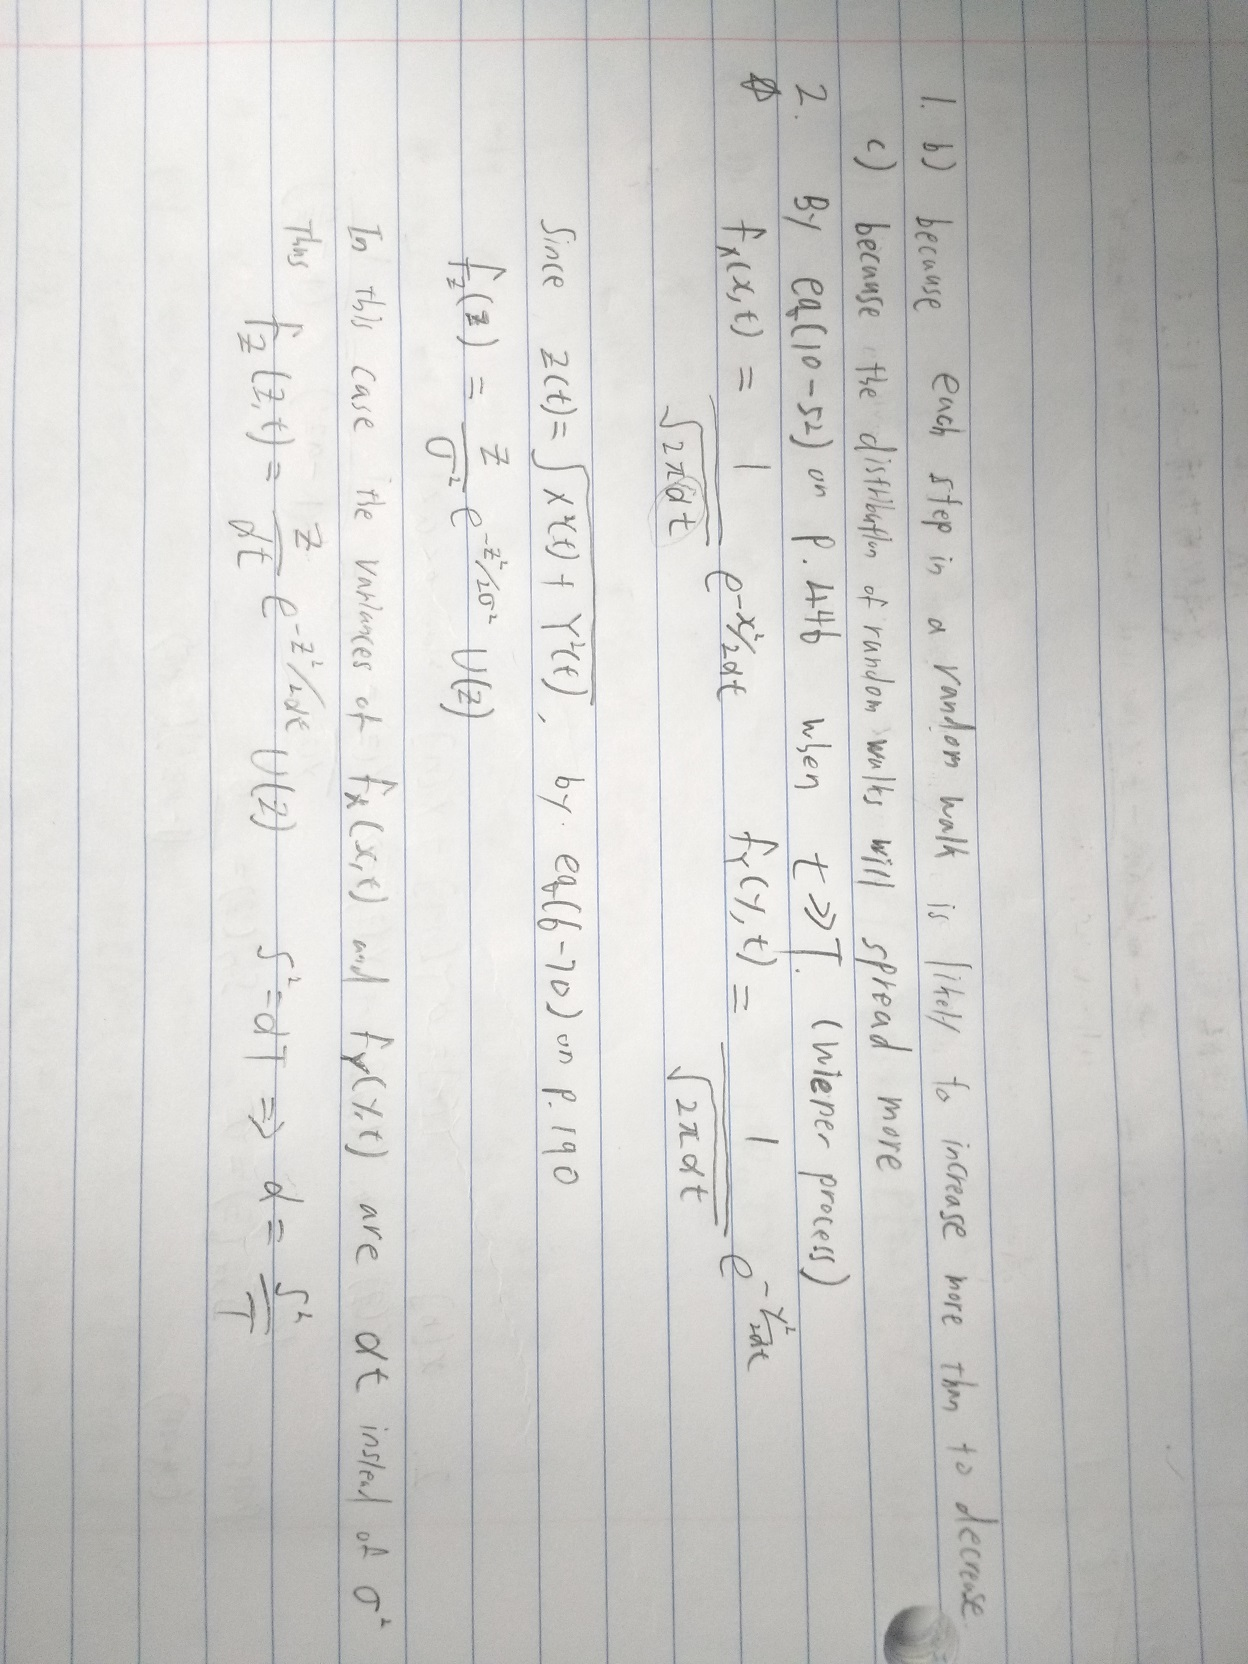 1. b) because each step in a random walk is likely to increase more than to decrease.
c) because the distribution of random walks will spread more
2. By eq(10-52) on P.446 when t≫T. (Wiener process)
f_X(x,t) = 1/√(2παt) e^(-x²/2αt) f_Y(y,t) = 1/√(2παt) e^(-y²/2αt)
Since z(t) = √(X²(t) + Y²(t)), by eq(6-70) on P.190
f_Z(z) = z/σ² e^(-z²/2σ²) U(z)
In this case the variances of f_X(x,t) and f_Y(y,t) are αt instead of σ²
Thus f_Z(z,t) = z/αt e^(-z²/2αt) U(z) s² = αT ⇒ α = s²/T